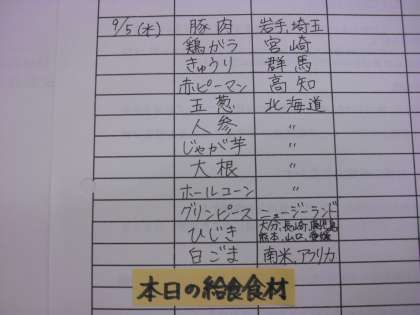 9/5(水) 豚肉 岩手、埼玉
鶏がら 宮崎
きゅうり 群馬
赤ピーマン 高知
玉葱 北海道
人参 〃
じゃが芋 〃
大根 〃
ホールコーン 〃
グリンピース ニュージーランド
ひじき 大分、長崎、鹿児島
熊本、山口、愛媛
白ごま 南米、アフリカ
本日の給食食材